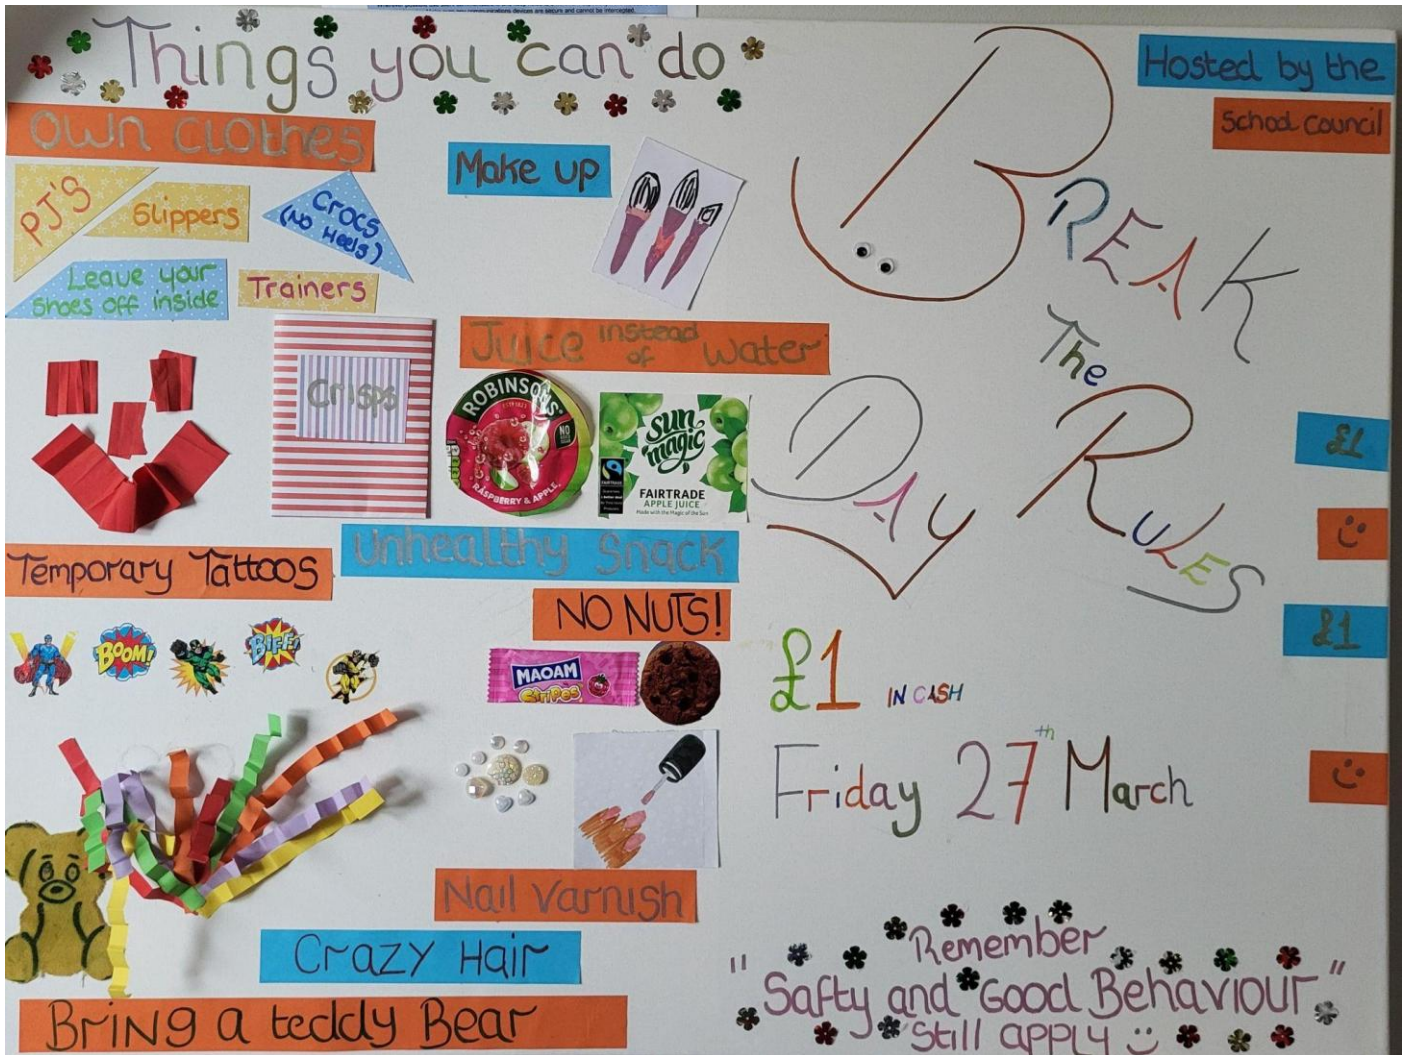 Things you can do
Own Clothes
PJ'S
Slippers
Crocs
(No Heels)
Leave your
shoes off inside
Trainers
Make up
Crisps
Juice instead of water
ROBINSONS
NO
RASPBERRY & APPLE
Sun
magic
FAIRTRADE
FAIRTRADE
APPLE JUICE
Made with the Magic of the Sun
Temporary Tattoos
BOOM!
BIFF!
Unhealthy Snack
NO NUTS!
MAOAM
Stripes
Nail Varnish
Crazy Hair
Bring a teddy Bear
Hosted by the
School Council
BREAK
The
RULES
DAY
£1
£1
£1 IN CASH
Friday 27th March
Remember
"Safty and Good Behaviour"
Still apply